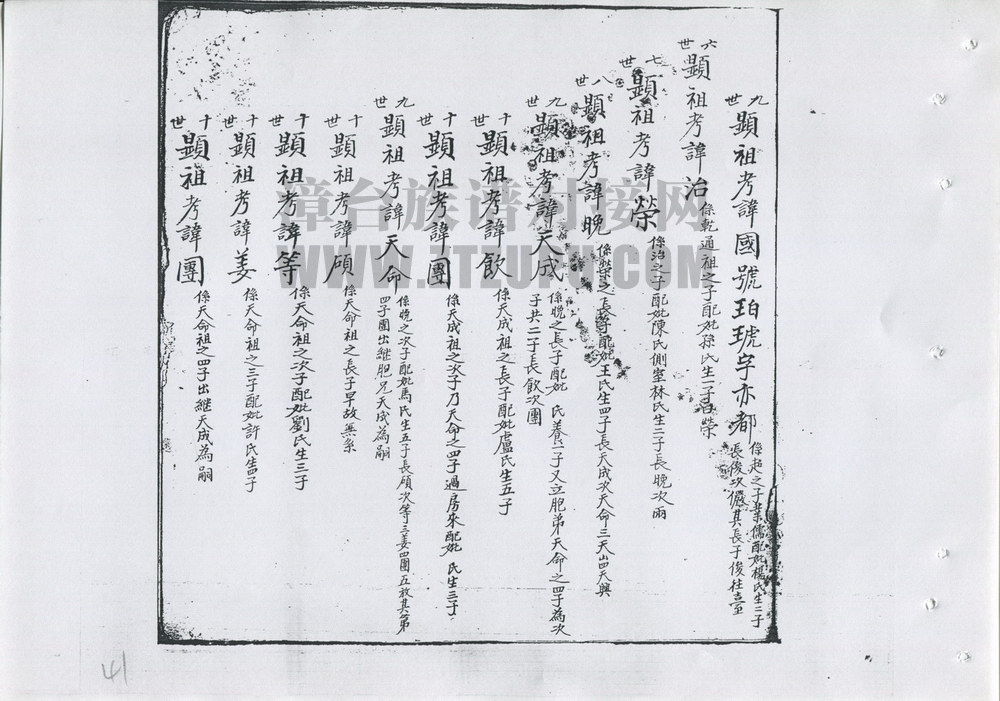 九世 顯祖考諱國號珀琥字亦都 係起之子業儒配妣楊氏生二子
長俊次儼其長子俊往壺
六世 顯祖考諱治 係乾通祖之子配妣孫氏生一子曰榮
七世 顯祖考諱榮 係治之子配妣陳氏側室林氏生二子長晚次兩
八世 顯祖考諱晚 係榮之長子配妣王氏生四子長天成次天命三天山四天興
九世 顯祖考諱天成 係晚之長子配妣 氏養一子又立胞弟天命之四子為次
子共二子長飲次團
十世 顯祖考諱飲 係天成祖之長子配妣盧氏生五子
十世 顯祖考諱團 係天成祖之次子乃天命之四子過房來配妣 氏生三子
九世 顯祖考諱天命 係晚之次子配妣馬氏生五子長碩次等三姜四團五放其第
四子團出継胞兄天成為嗣
十世 顯祖考諱碩 係天命祖之長子早故無系
十世 顯祖考諱等 係天命祖之次子配妣劉氏生三子
十世 顯祖考諱姜 係天命祖之三子配妣許氏生四子
十世 顯祖考諱團 係天命祖之四子出継天成為嗣
漳台族谱对接网
WWW.ZTZUPU.COM
41